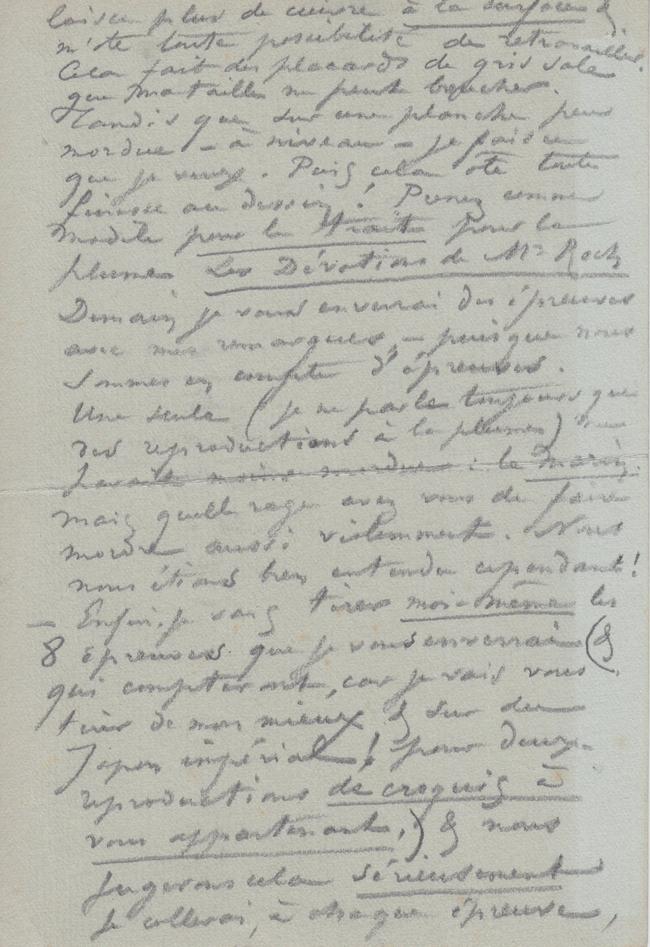 laisse plus de cuivre à la surface &
m'ôte toute possibilité de retravailler.
Cela fait des placards de gris sale
que ma taille ne peut boucher.
Tandis que sur une planche peu
mordue – à niveau – je fais ce
que je veux. Puis cela ôte toute
finesse au dessin! Prenez comme
modèle pour le trait pour la
plume Les Dévotions de Mr Roch
Demain je vous enverrai des épreuves
avec mes remarques, – puisque nous
sommes en compte d'épreuves.
Une seule (je ne parle toujours que
des reproductions à la plume)
: le marin.
mais quelle rage avez vous de faire
mordre aussi violemment. Nous
nous étions bien entendu cependant!
– Enfin je vais tirer moi-même les
8 épreuves que je vous enverrai (&
qui compteront, car je vais vous
tirer de mon mieux & sur du
Japon impérial! pour deux
reproductions de croquis à
vous appartenant,) & nous
jugerons cela sérieusement
Je collerai, à chaque épreuve,